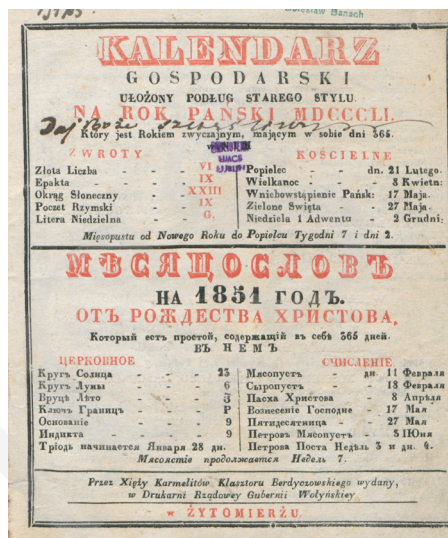 Bolesław Banach
KALENDARZ
GOSPODARSKI
UŁOŻONY PODŁUG STAREGO STYLU.
NA ROK PAŃSKI MDCCCLI.
Daj Boże szczęśliwy
Który jest Rokiem zwyczajnym, mającym w sobie dni 365.
UMCS
LUBLIN
ZWROTY KOŚCIELNE
Złota Liczba - - - VI
Epakta - - - IX
Okrąg Słoneczny - - XXIII
Poczet Rzymski - - IX
Litera Niedzielna - - G.
Popielec - - dn. 21 Lutego.
Wielkanoc - - - 8 Kwietn:
Wniebowstąpienie Pańsk: 17 Maja.
Zielone Święta - - 27 Maja.
Niedziela 1 Adwentu - 2 Grudni:
Mięsopustu od Nowego Roku do Popielcu Tygodni 7 i dni 2.
МѢСЯЦОСЛОВЪ
НА 1851 ГОДЪ.
ОТЪ РОЖДЕСТВА ХРИСТОВА,
Который есть простой, содержащій въ себѣ 365 дней.
ВЪ НЕМЪ
ЦЕРКОВНОЕ СЧИСЛЕНІЕ
Кругъ Солнца - - - 23
Кругъ Луны - - - 6
Вруцѣ Лѣто - - -
Ключъ Границъ - - Р
Основаніе - - - 9
Индикта - - - 9
Тріодь начинается Января 28 дн.
Мясопустъ - дн. 11 Февраля
Сыропустъ - - 18 Февраля
Пасха Христова - 8 Апрѣля
Вознесеніе Господне - 17 Мая
Пятидесятница - 27 Мая
Петровъ Мясопустъ - 3 ІЮня
Петрова Поста Недѣль 3 и дн. 4.
Мясоястіе продолжается Недель 7.
Przez Xięży Karmelitów Klasztoru Berdyczowskiego wydany,
w Drukarni Rządowey Gubernii Wołyńskiey
w ŻYTOMIERZU.